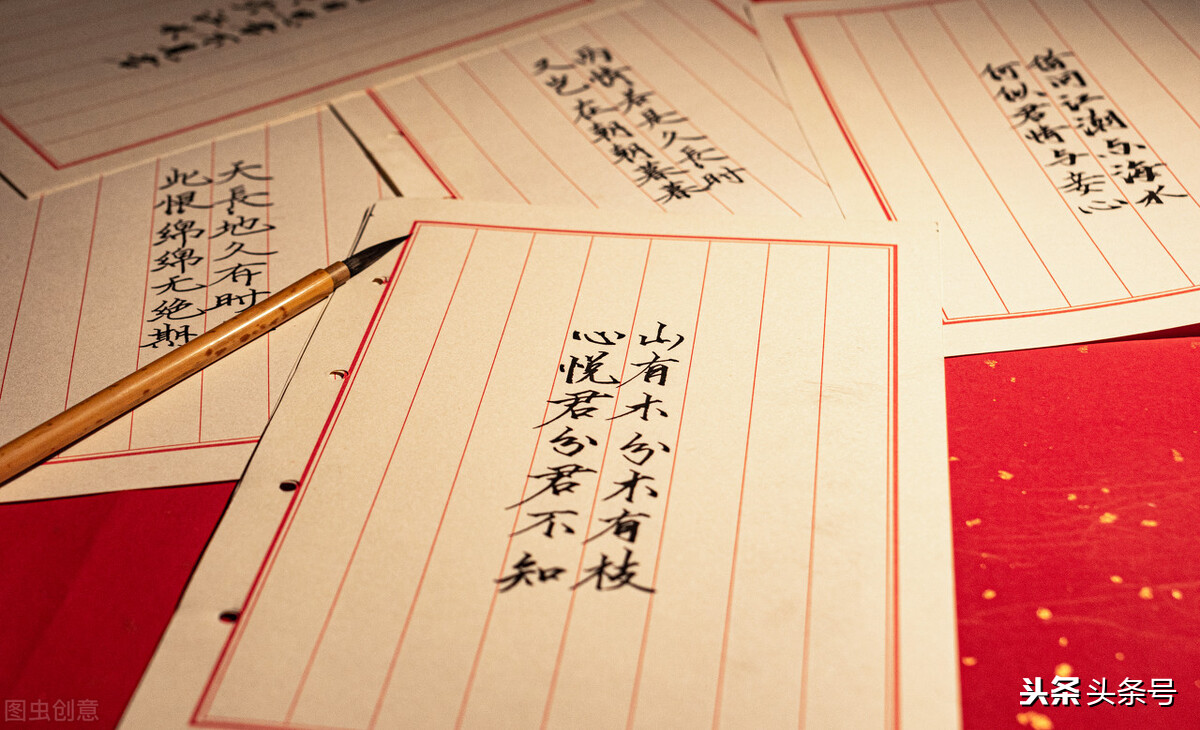 山有木兮木有枝
心悦君兮君不知
天長地久有时
此恨绵绵无绝期
两情若是久長时
又岂在朝朝暮暮
借问江潮与海水
何似君情与妾心
图虫创意
头条 头条号